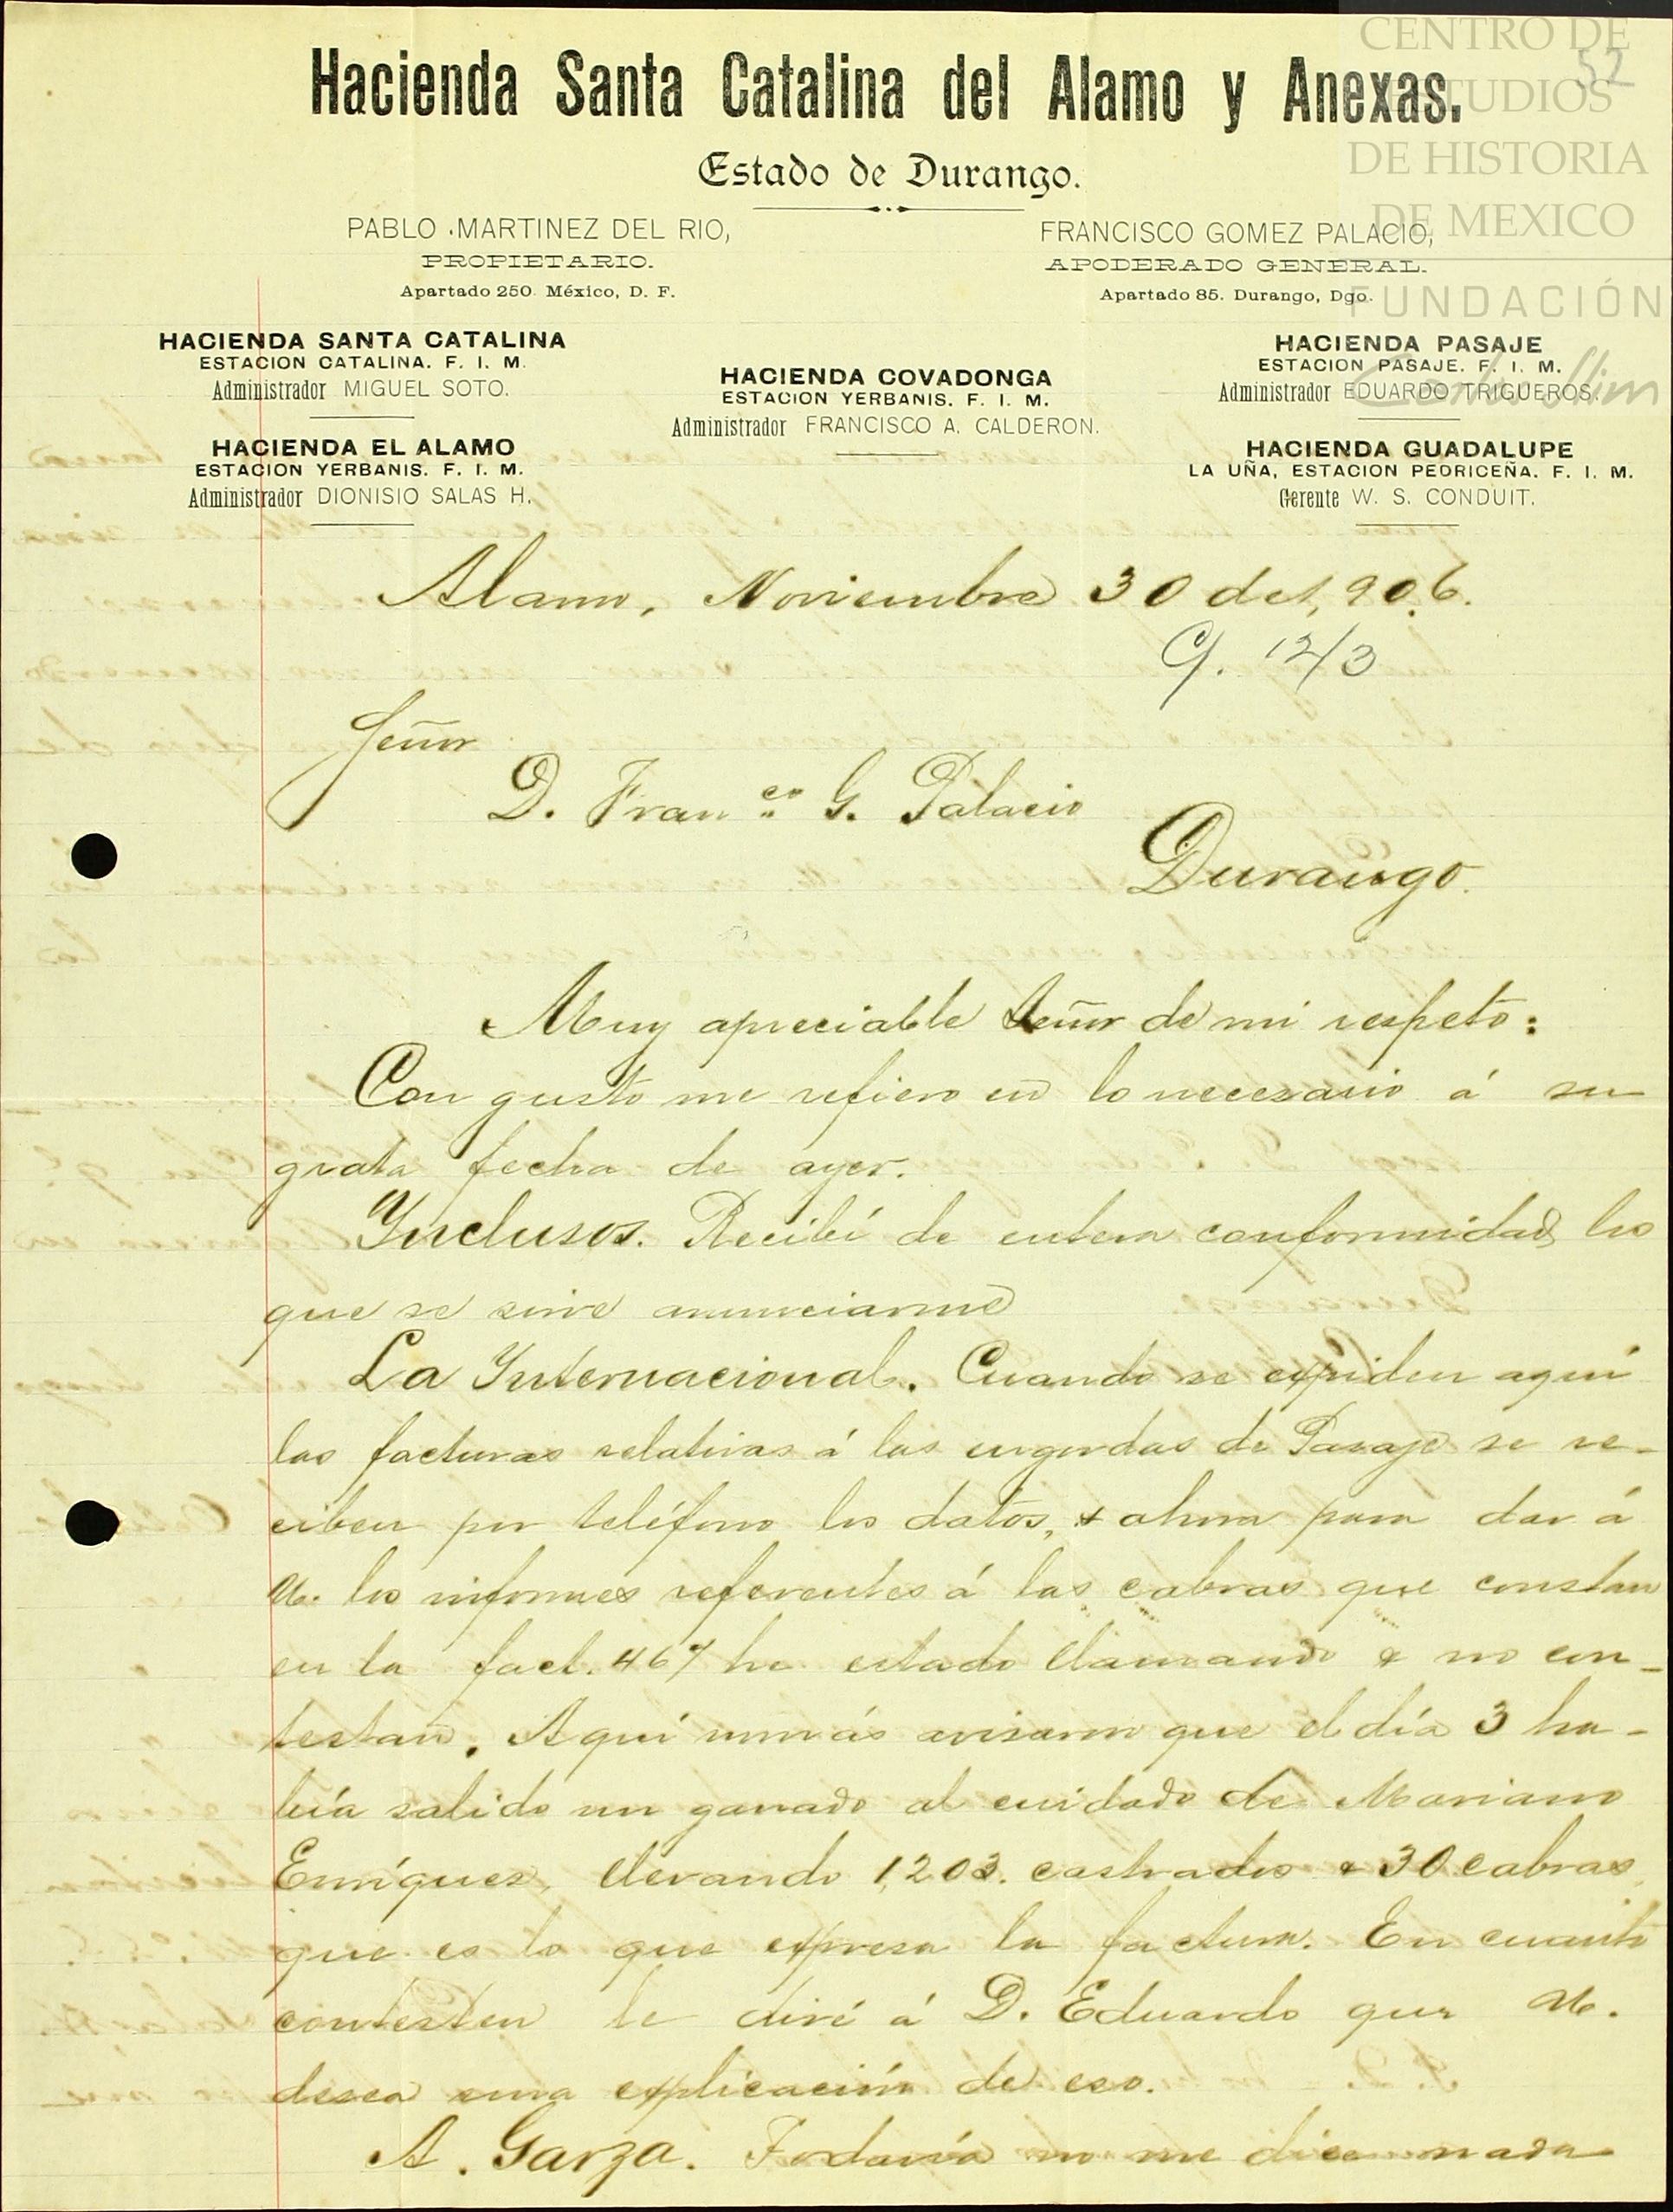 CENTRO DE
ESTUDIOS
DE HISTORIA
DE MEXICO
FUNDACIÓN
Carlos Slim
52
Hacienda Santa Catalina del Alamo y Anexas.
Estado de Durango.
PABLO MARTINEZ DEL RIO,
PROPIETARIO.
Apartado 250. México, D. F.
FRANCISCO GOMEZ PALACIO,
APODERADO GENERAL.
Apartado 85. Durango, Dgo.
HACIENDA SANTA CATALINA
ESTACION CATALINA. F. I. M.
Administrador MIGUEL SOTO.
HACIENDA EL ALAMO
ESTACION YERBANIS. F. I. M.
Administrador DIONISIO SALAS H.
HACIENDA COVADONGA
ESTACION YERBANIS. F. I. M.
Administrador FRANCISCO A. CALDERON.
HACIENDA PASAJE
ESTACION PASAJE. F. I. M.
Administrador EDUARDO TRIGUEROS.
HACIENDA GUADALUPE
LA UÑA, ESTACION PEDRICEÑA. F. I. M.
Gerente W. S. CONDUIT.
Alamo, Noviembre 30 de 1,906.
C/. 12/3
Señor
D. Franco. G. Palacio
Durango.
Muy apreciable Señor de mi respeto:
Con gusto me refiero en lo necesario á su
grata fecha de ayer.
Ynclusos. Recibí de entera conformidad los
que se sirve anunciarme
La Ynternacional. Cuando se expiden aquí
las facturas relativas á las engordas de Pasaje se re-
ciben por teléfono los datos, & ahora para dar á
U. los informes referentes á las cabras que constan
en la fact. 467 he estado llamando & no con-
testan. Aquí nomás avisaron que el día 3 ha-
bía salido un ganado al cuidado de Mariano
Enríquez, llevando 1,203. castrados & 30 cabras
que es lo que expresa la factura. En cuanto
contesten le diré á D. Eduardo que U.
desea una explicación de eso.
A. Garza. Todavía no me dice nada